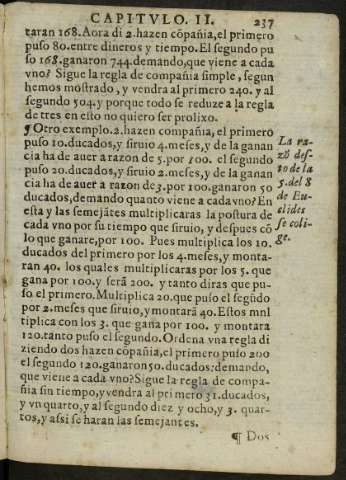 CAPITVLO. II. 237
taran 168. Aora di 2. hazen cõpañia, el primero
puso 80. entre dineros y tiempo. El segundo pu
so 168. ganaron 744. demando, que viene a cada
vno? Sigue la regla de compañia simple, segun
hemos mostrado, y vendra al primero 240. y al
segundo 504. y porque todo se reduze a la regla
de tres en esto no quiero ser prolixo.
¶ Otro exemplo. 2. hazen compañia, el primero
puso 10. ducados, y siruio 4. meses, y de la ganan
cia ha de auer a razon de 5. por 100. el segundo
puso 20. ducados, y siruio 2. meses, y de la ganan
cia ha de auer a razon de 3. por 100. ganaron 50
ducados, demando quanto viene a cada vno? En
esta y las semejãtes multiplicaras la postura de
cada vno por su tiempo que siruio, y despues cõ
lo que ganare, por 100. Pues multiplica los 10.
ducados del primero por los 4. meses, y monta-
ran 40. los quales multiplicaras por los 5. que
gana por 100. y serã 200. y tanto diras que pu-
so el primero. Multiplica 20. que puso el segũdo
por 2. meses que siruio, y montarã 40. Estos mul
tiplica con los 3. que gana por 100. y montara
120. tanto puso el segundo. Ordena vna regla di
ziendo dos hazen cõpañia, el primero puso 200
el segundo 120. ganaron 50. ducados: demando,
que viene a cada vno? Sigue la regla de compa-
ñia sin tiempo, y vendra al primero 31. ducados,
y vn quarto, y al segundo diez y ocho, y 3. quar-
tos, y assi se haran las semejantes.
¶ Dos
La ra-
zõ des-
to de la
5. del 8
de Eu-
clides
se coli-
ge.